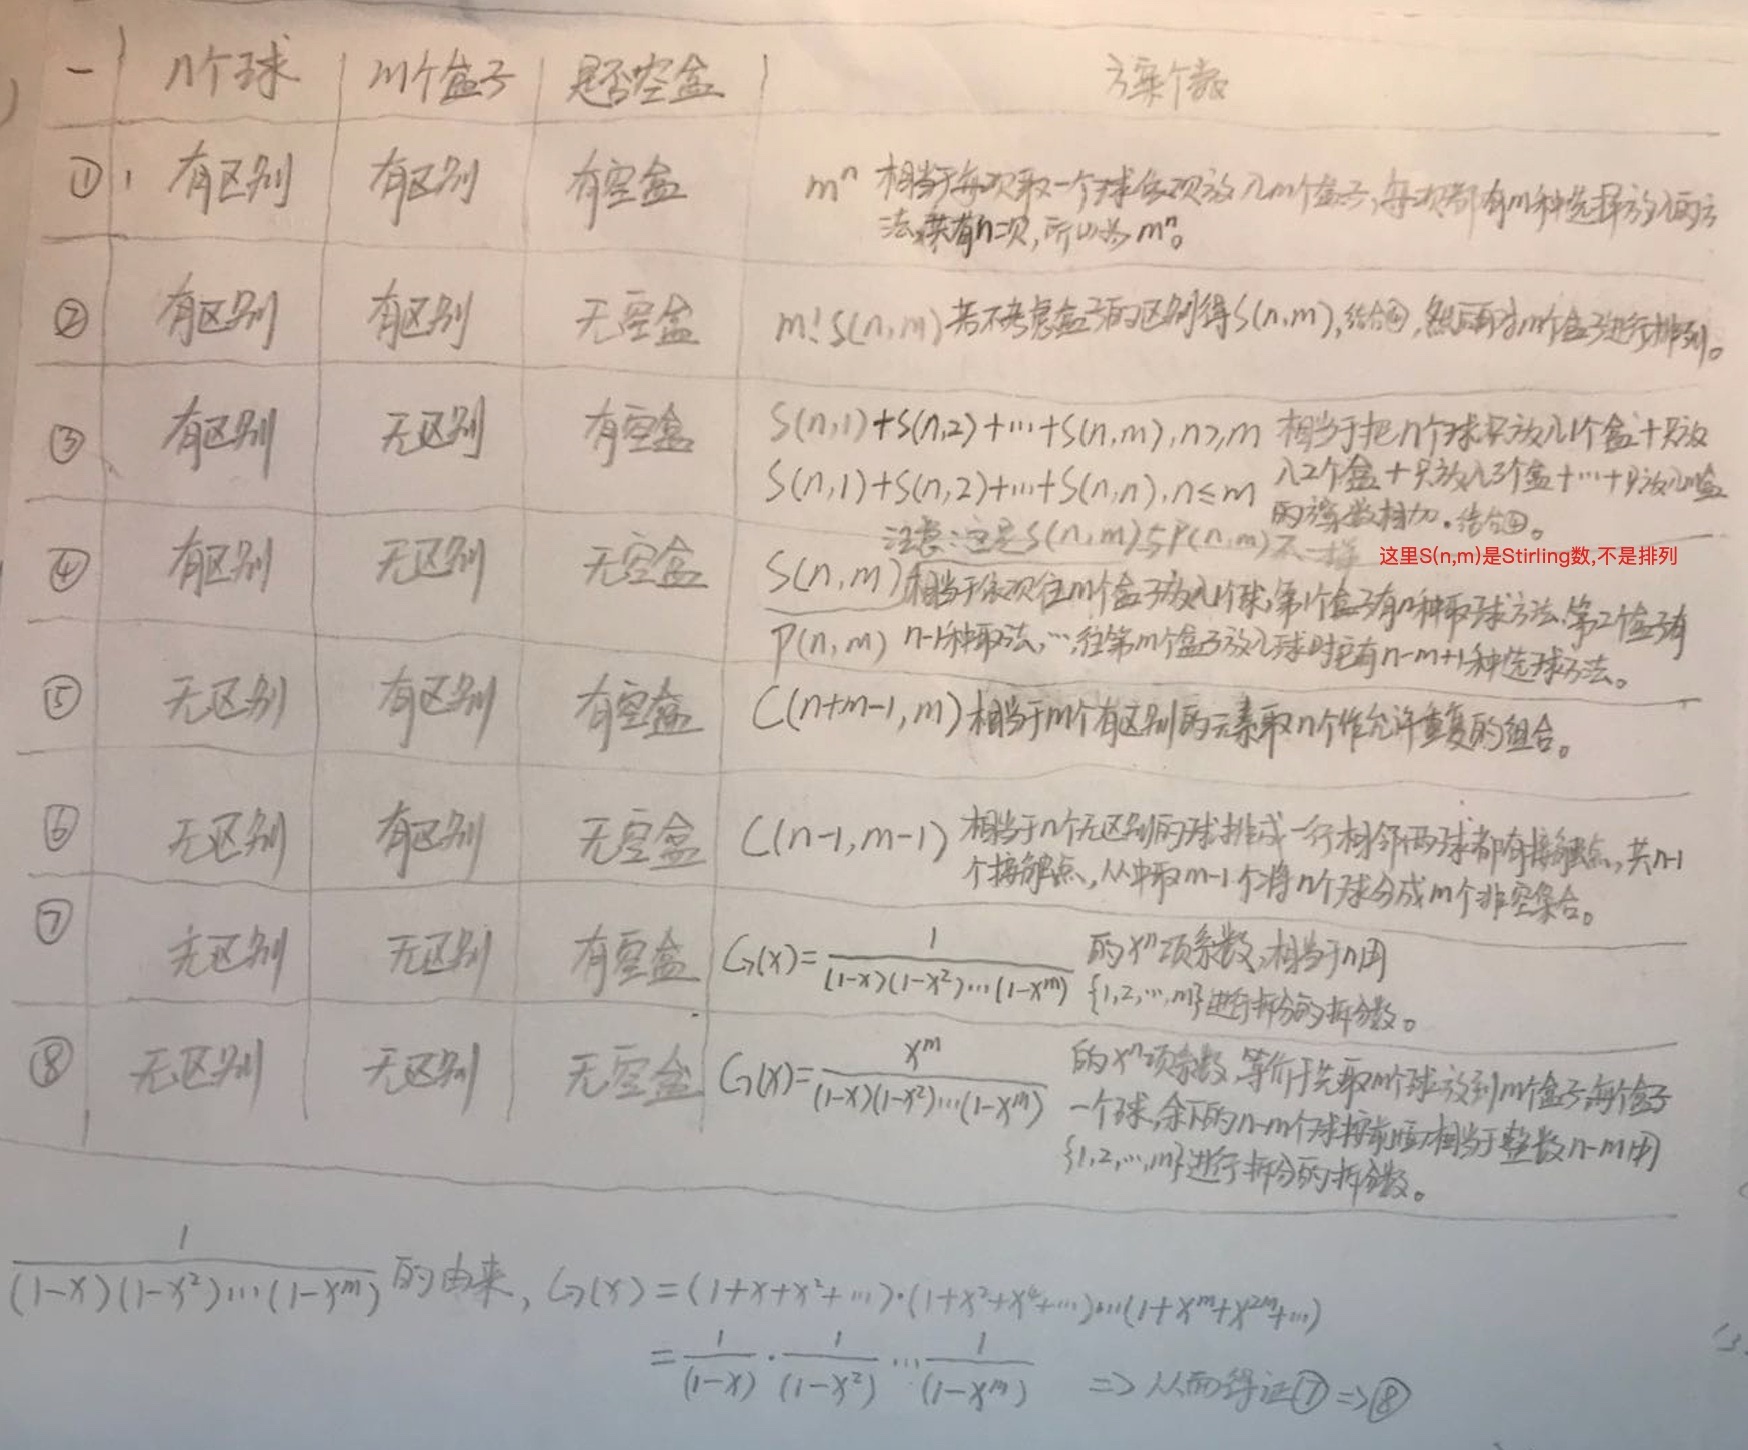 一 n个球 m个盒子 是否空盒 方案个数
① 有区别 有区别 有空盒 mⁿ 相当于每次取一个球依次放入m个盒子,每次都有m种选择放入的方
法,共有n次,所以为mⁿ。
② 有区别 有区别 无空盒 m!S(n,m) 若不考虑盒子的区别得S(n,m),结合④,然后再对m个盒子进行排列。
③ 有区别 无区别 有空盒 S(n,1)+S(n,2)+…+S(n,m),n≥m 相当于把n个球只放入1个盒+只放
S(n,1)+S(n,2)+…+S(n,n),n≤m 入2个盒+只放入3个盒+…+只放入m盒
的方案数相加。结合④。
注意:这是S(n,m)与P(n,m)不一样 这里S(n,m)是Stirling数,不是排列
④ 有区别 无区别 无空盒 S(n,m) 相当于依次往m个盒子放入1个球,第1个盒子有n种取球方法,第2个盒子有
P(n,m) n-1种取法,…,往第m个盒子放入球时它有n-m+1种选球方法。
⑤ 无区别 有区别 有空盒 C(n+m-1,m) 相当于m个有区别的元素取n个作允许重复的组合。
⑥ 无区别 有区别 无空盒 C(n-1,m-1) 相当于n个无区别的球排成一行相邻两球都有接触点,共n-1
个接触点,从中取m-1个将n个球分成m个非空集合。
⑦ 无区别 无区别 有空盒 G(x)=1/((1-x)(1-x²)…(1-xᵐ)) 的xⁿ项系数,相当于n用
{1,2,…,m}进行拆分的拆分数。
⑧ 无区别 无区别 无空盒 G(x)=xᵐ/((1-x)(1-x²)…(1-xᵐ)) 的xⁿ项系数,等价于先取m个球放到m个盒子,每个盒子
一个球,余下的n-m个球相当于整数n-m用
{1,2,…,m}进行拆分的拆分数。
1/((1-x)(1-x²)…(1-xᵐ)) 的由来,G(x)=(1+x+x²+…)·(1+x²+x⁴+…)…(1+xᵐ+x²ᵐ+…)
=1/(1-x)·1/(1-x²)…1/(1-xᵐ) => 从而得证⑦=>⑧